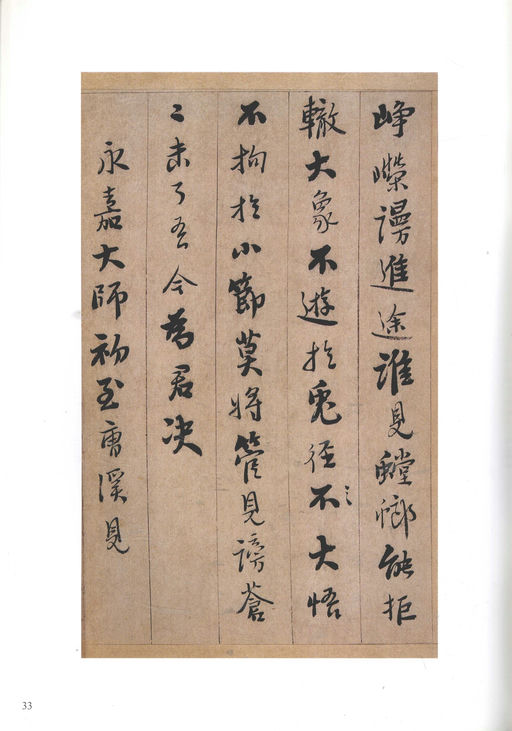 崢嶸謾進途誰見螳螂能拒
轍大象不遊扵兔徑不大悟
不拘扵小節莫將管見謗蒼
〻未了吾今為君決
永嘉大師初至曹溪見
33